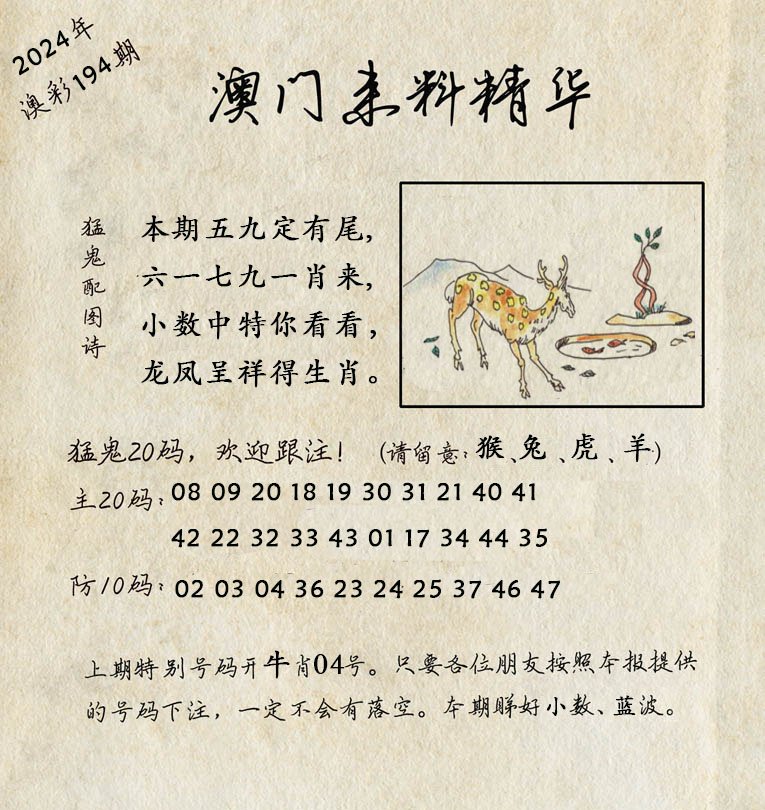 2024年
澳彩194期
澳门来料精华
猛鬼配图诗
本期五九定有尾，
六一七九一肖来，
小数中特你看看，
龙凤呈祥得生肖。
猛鬼20码，欢迎跟注！（请留意：猴、兔、虎、羊）
主20码：08 09 20 18 19 30 31 21 40 41
42 22 32 33 43 01 17 34 44 35
防10码：02 03 04 36 23 24 25 37 46 47
上期特别号码开牛肖04号。只要各位朋友按照本报提供
的号码下注，一定不会有落空。本期睇好小数、蓝波。